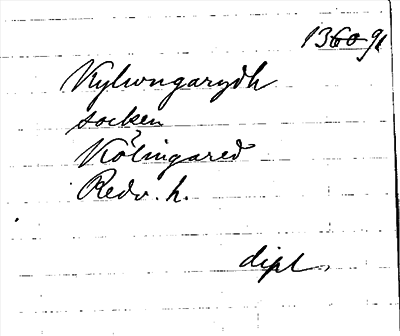 1360 91
Kylwngarydh
socken
Kölingared
Redv. h.
dipl.